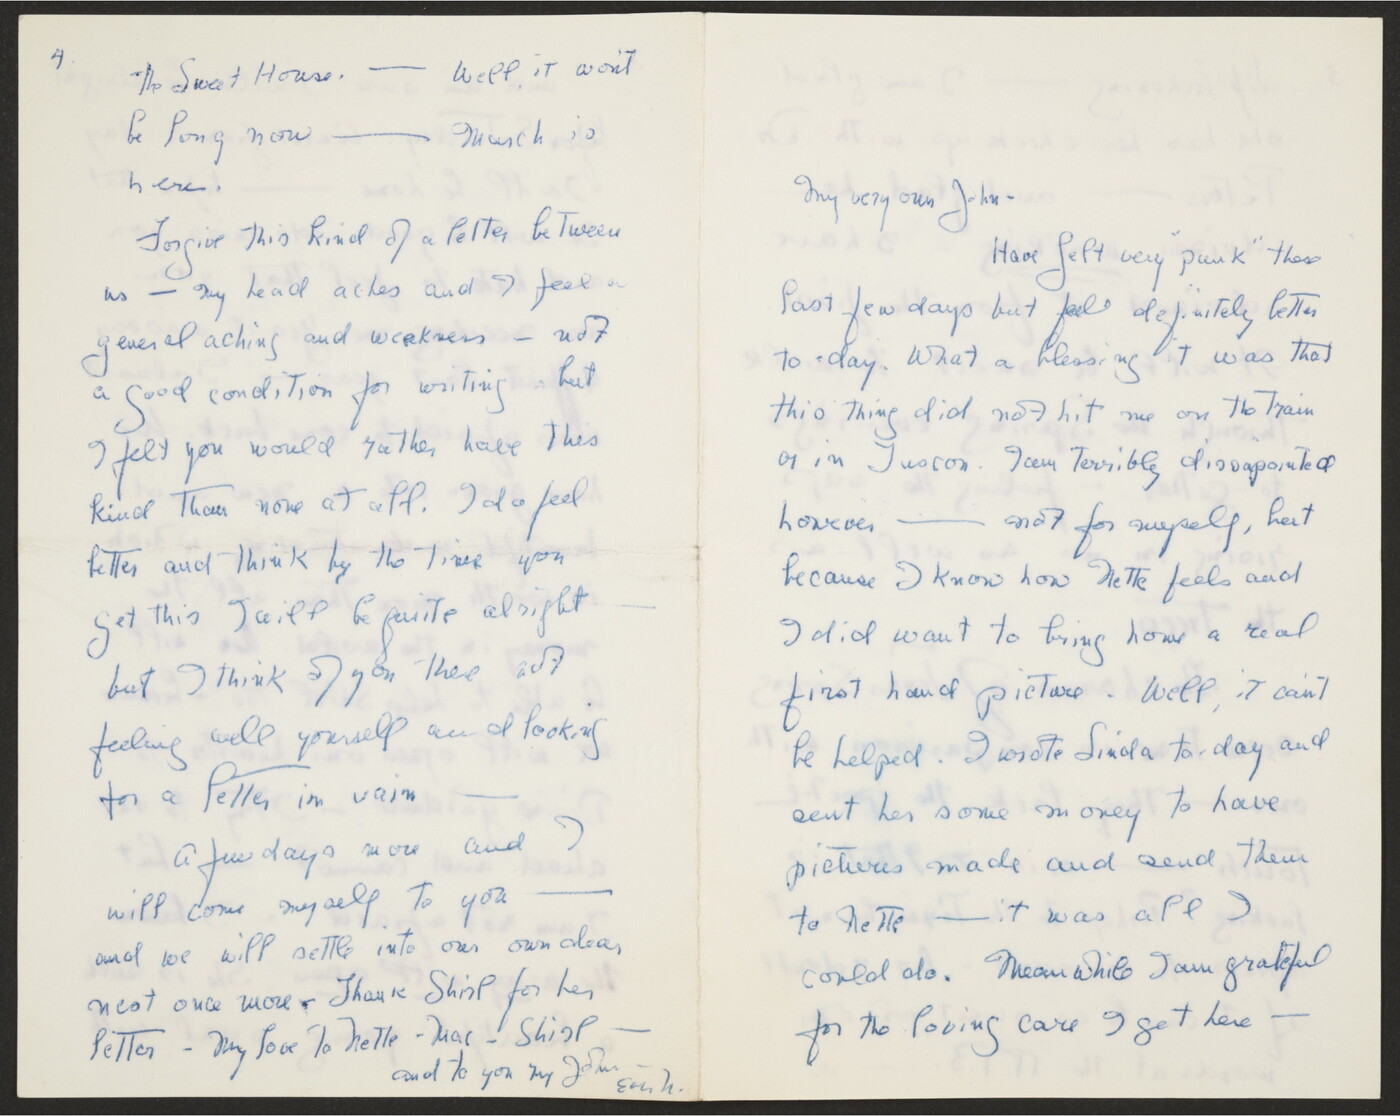 4.
the Sweet House. — Well, it won't
be long now — March is
here.
Forgive this kind of a letter between
us — my head aches and I feel a
general aching and weakness — not
a good condition for writing but
I felt you would rather have this
kind than none at all. I do feel
better and think by the time you
get this I will be quite alright —
but I think of you there not
feeling well yourself and looking
for a letter in vain —
A few days more and I
will come myself to you —
and we will settle into our own dear
nest once more. Thank Shirl for her
letter - My love to Nette - Mac - Shirl —
and to you my John
My very own John -
Have felt very "punk" these
last few days but feel definitely better
to-day. What a blessing it was that
this thing did not hit me on the train
or in Tuscon. I am terribly dissapointed
however — not for myself, but
because I know how Nette feels and
I did want to bring home a real
first hand picture. Well, it can't
be helped. I wrote Linda to-day and
sent her some money to have
pictures made and send them
to Nette — it was all I
could do. Meanwhile I am grateful
for the loving care I get here —